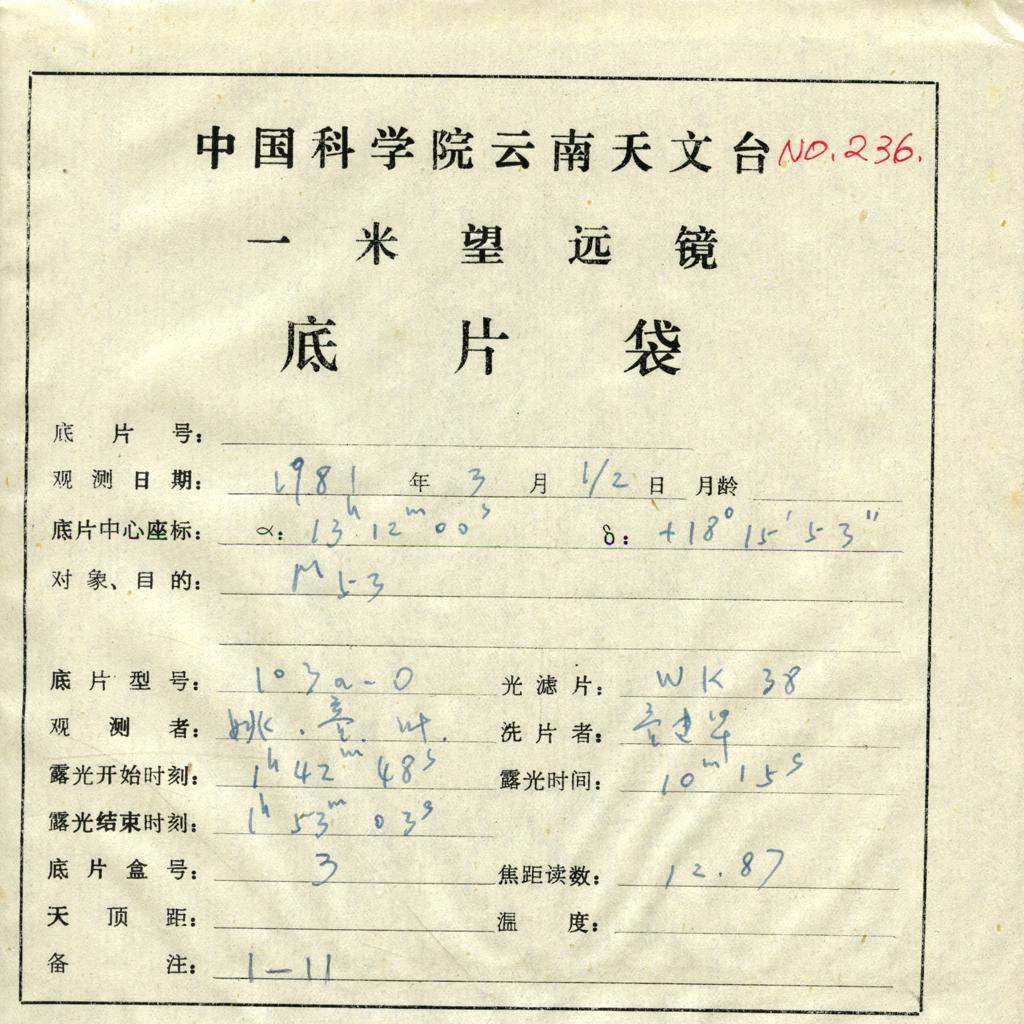 中国科学院云南天文台 NO.236.
一米望远镜
底片袋
底片号：
观测日期： 1981 年 3 月 1/2 日 月龄
底片中心座标： α： 13h 12m 00s δ： +18° 15′ 53″
对象、目的： M 53
底片型号： 103a-O 光滤片： WK 38
观测者： 姚. . 叶. 洗片者：
露光开始时刻： 1h 42m 48s 露光时间： 10m 15s
露光结束时刻： 1h 53m 03s
底片盒号： 3 焦距读数： 12.87
天顶距： 温度：
备注： 1-11